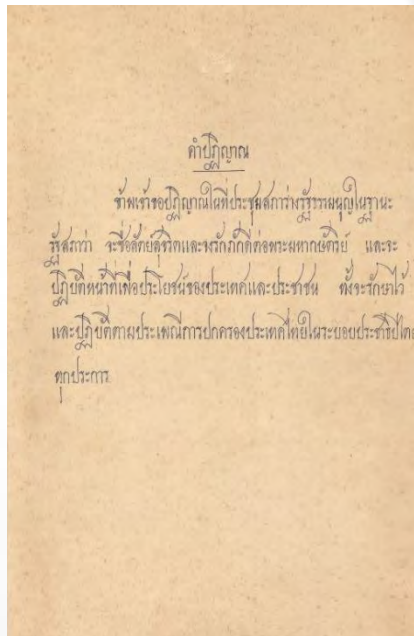 คำปฏิญาณ
ข้าพเจ้าขอปฏิญาณในที่ประชุมสภาร่างรัฐธรรมนูญในฐานะ
รัฐสภาว่า จะซื่อสัตย์สุจริตและจงรักภักดีต่อพระมหากษัตริย์ และจะ
ปฏิบัติหน้าที่เพื่อประโยชน์ของประเทศและประชาชน ทั้งจะรักษาไว้
และปฏิบัติตามประเพณีการปกครองประเทศไทยในระบอบประชาธิปไตย
ทุกประการ